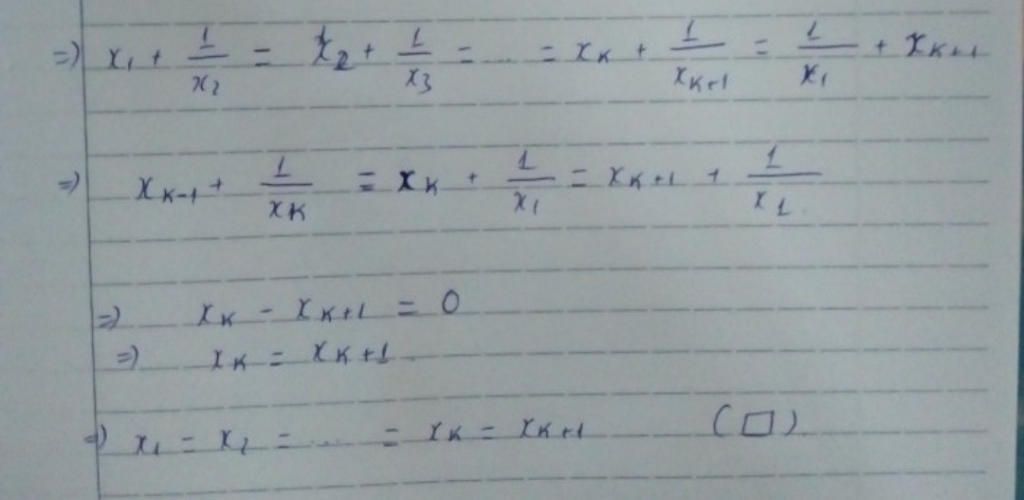 ⇒) x₁ + 1/x₂ = x₂ + 1/x₃ = ... = x_K + 1/x_{K+1} = 1/x₁ + x_{K+1}
⇒) x_{K-1} + 1/x_K = x_K + 1/x₁ = x_{K+1} + 1/x₁
⇒) x_K - x_{K+1} = 0
⇒) x_K = x_{K+1}
⇒) x₁ = x₂ = .... = x_K = x_{K+1} (□)